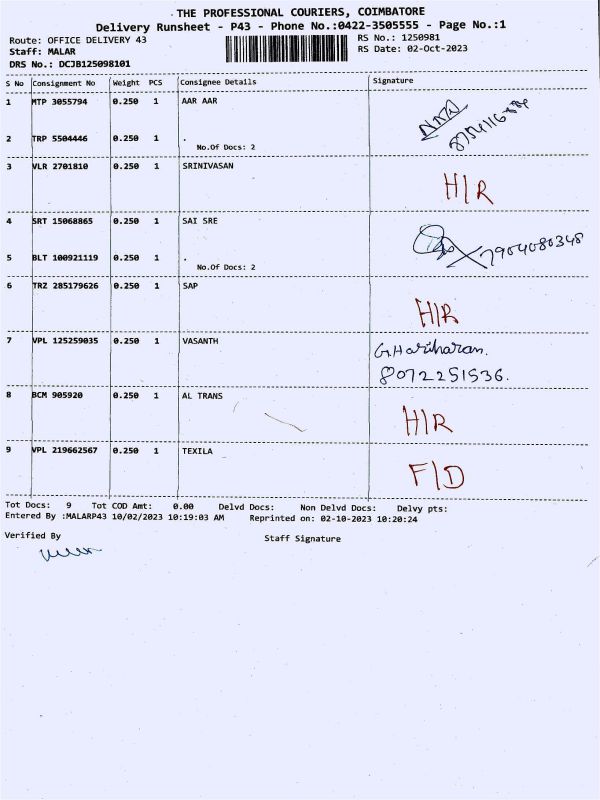 THE PROFESSIONAL COURIERS, COIMBATORE
Delivery Runsheet - P43 - Phone No.:0422-3505555 - Page No.:1
Route: OFFICE DELIVERY 43 RS No.: 1250981
Staff: MALAR RS Date: 02-Oct-2023
DRS No.: DCJB125098101
S No Consignment No Weight PCS Consignee Details Signature
1 MTP 3055794 0.250 1 AAR AAR
2 TRP 5504446 0.250 1 .
No.Of Docs: 2
3 VLR 2701810 0.250 1 SRINIVASAN H/R
4 SRT 15068865 0.250 1 SAI SRE
7904080348
5 BLT 100921119 0.250 1 .
No.Of Docs: 2
6 TRZ 285179626 0.250 1 SAP H/R
7 VPL 125259035 0.250 1 VASANTH G.Hariharan.
8072251536.
8 BCM 905920 0.250 1 AL TRANS H/R
9 VPL 219662567 0.250 1 TEXILA F/D
Tot Docs: 9 Tot COD Amt: 0.00 Delvd Docs: Non Delvd Docs: Delvy pts:
Entered By :MALARP43 10/02/2023 10:19:03 AM Reprinted on: 02-10-2023 10:20:24
Verified By Staff Signature